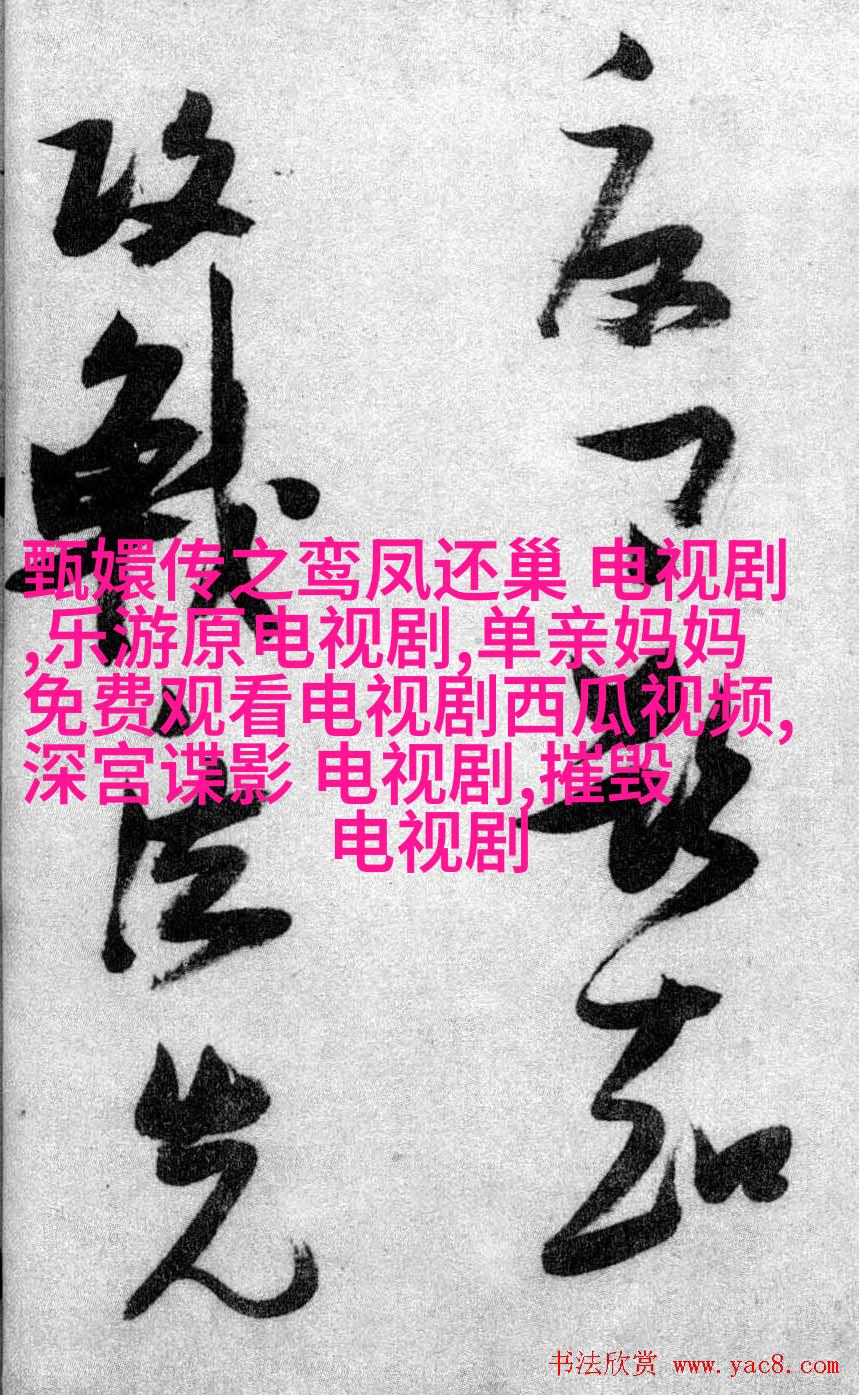 甄嬛传之鸾凤还巢 电视剧
,乐游原电视剧,单亲妈妈
免费观看电视剧西瓜视频,
深宫谍影 电视剧,摧毁
电视剧
知
攻戰先
书法欣赏 www.yac8.com